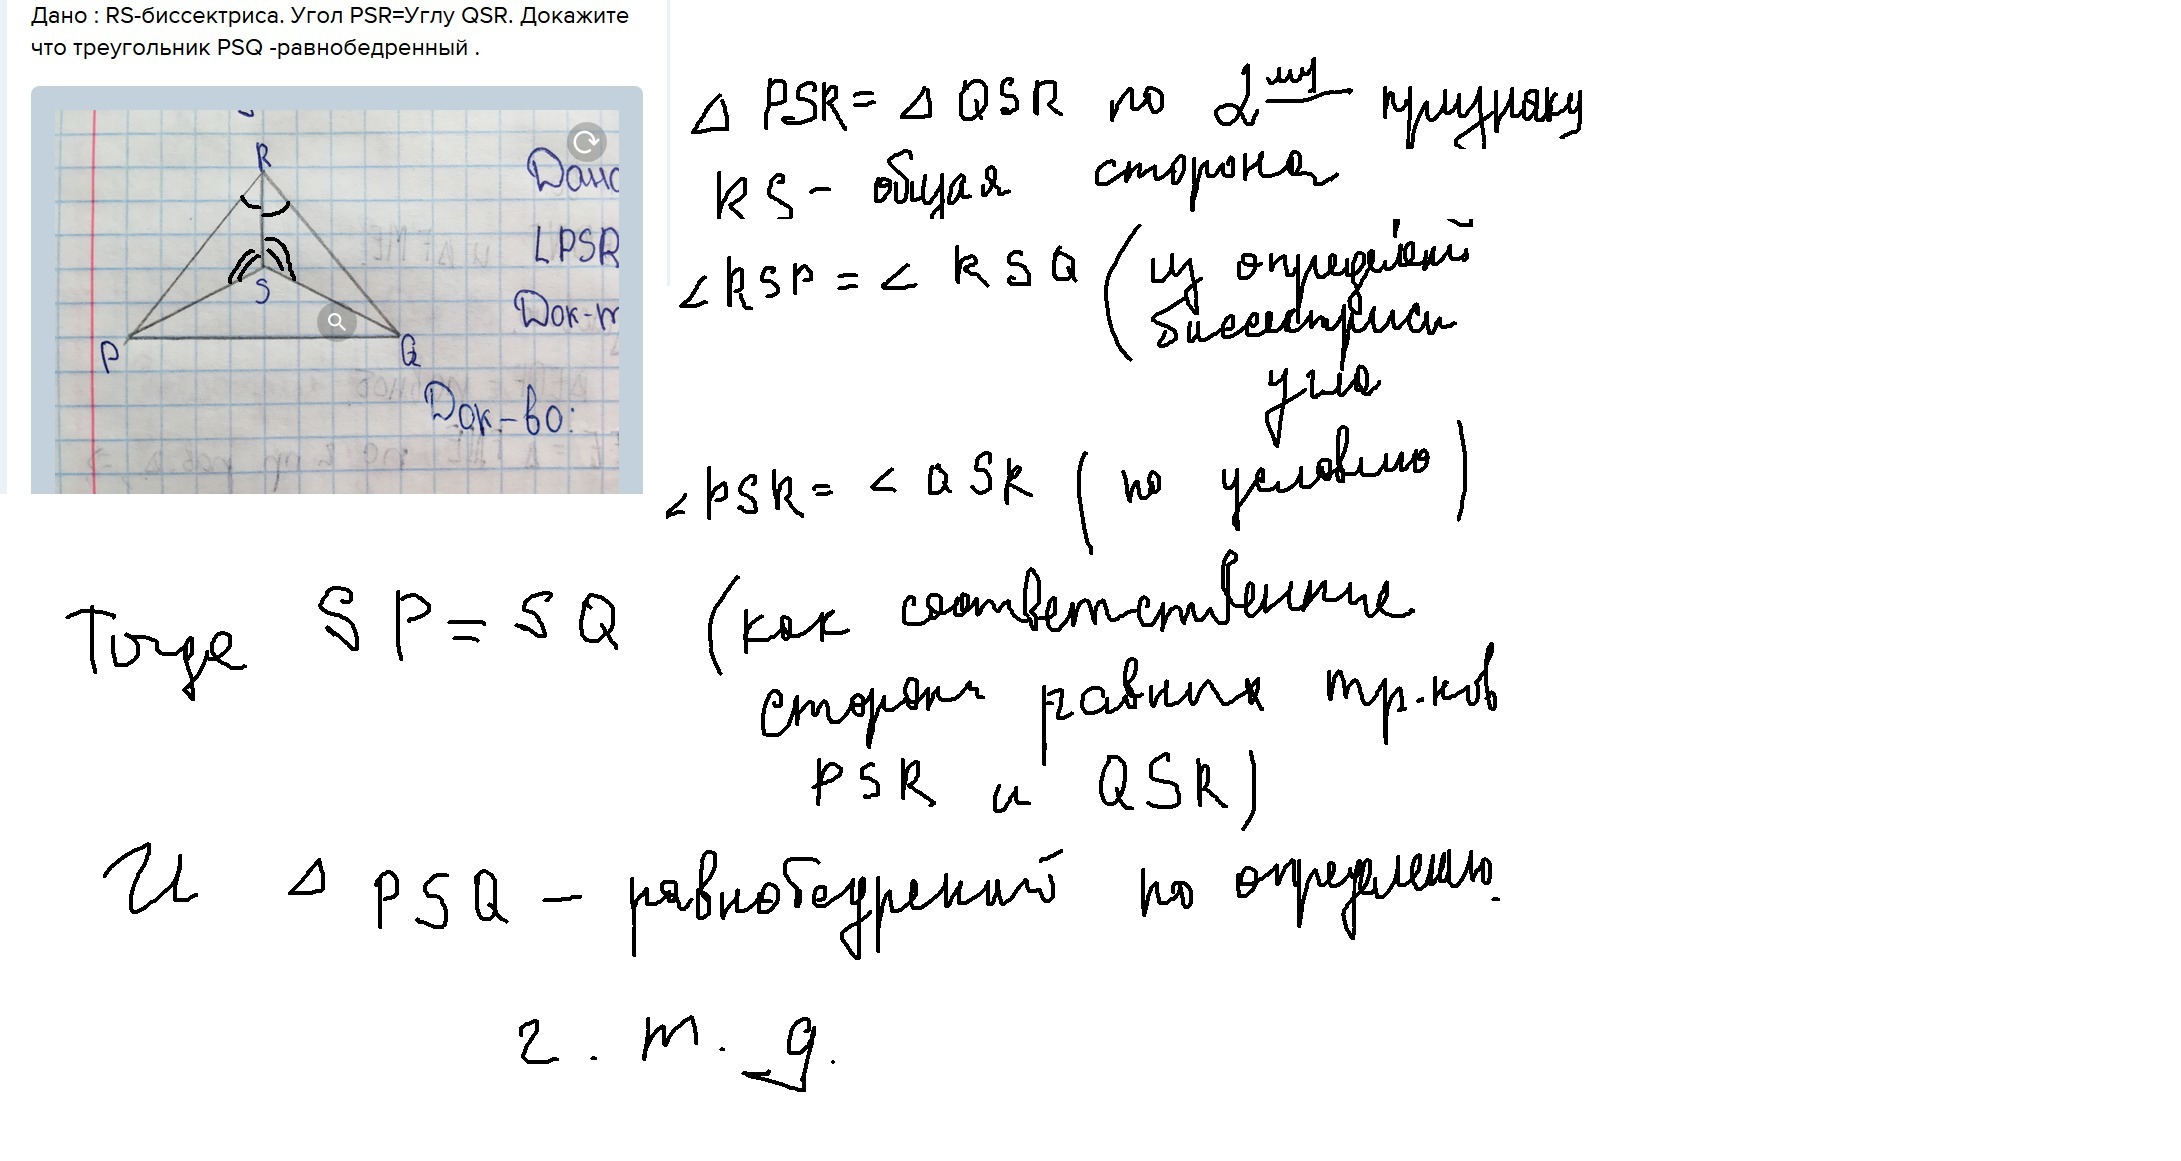 Дано : RS-биссектриса. Угол PSR=Углу QSR. Докажите
что треугольник PSQ -равнобедренный .
R
S
P
Q
Дано
∠PSR
Док-т
Док-во:
△ PSR = △ QSR по 2му признаку
RS - общая сторона
∠RSP = ∠RSQ (из определений
биссектрисы
угла
∠PSR = ∠QSR (по условию)
Тогда SP = SQ (как соответственные
стороны равных тр.ков
PSR и QSR)
И △ PSQ - равнобедренный по определению.
ч. т. д.